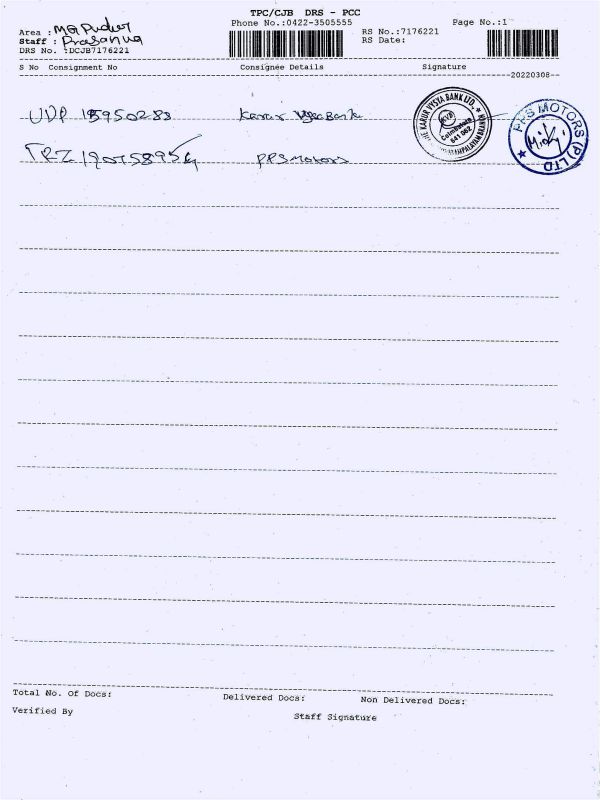 TPC/CJB DRS - PCC
Phone No.:0422-3505555
Page No.:1
Area : MGPudur
Staff : Prasanna
DRS No. :DCJB7176221
RS No.:7176221
RS Date:
S No Consignment No Consignee Details Signature
20220308
UDP Karur Vysya Bank
THE KARUR VYSYA BANK LTD.
KVB
Coimbatore
641 062
TRZ PPS Motors
PPS MOTORS (P) LTD
Total No. Of Docs: Delivered Docs: Non Delivered Docs:
Verified By Staff Signature